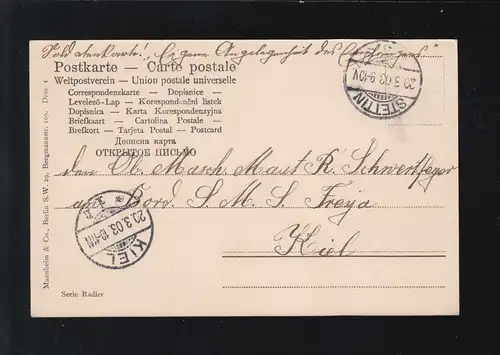 Soldatenkarte! "Eigene Angelegenheit des Empfängers"
Postkarte — Carte postale
Weltpostverein — Union postale universelle
Correspondenzkarte — Dopisnice —
Levelező-Lap — Korespondní lístek
Dopisnica — Karta Korespondencyjna
Briefkaart — Cartolina Postale —
Brefkort — Tarjeta Postal — Postcard
Дописна карта
ОТКРЫТОЕ ПИСЬМО
STETTIN
20.3.03. 9-10V
den Ob. Masch. Maat R. Schwertfeger
an Bord S. M. S. Freya
Kiel
KIEL
20.3.03. 10-11N
Mannheim & Co., Berlin S.W. 29, Bergmannstr. 105. Dess 1
Serie Radler